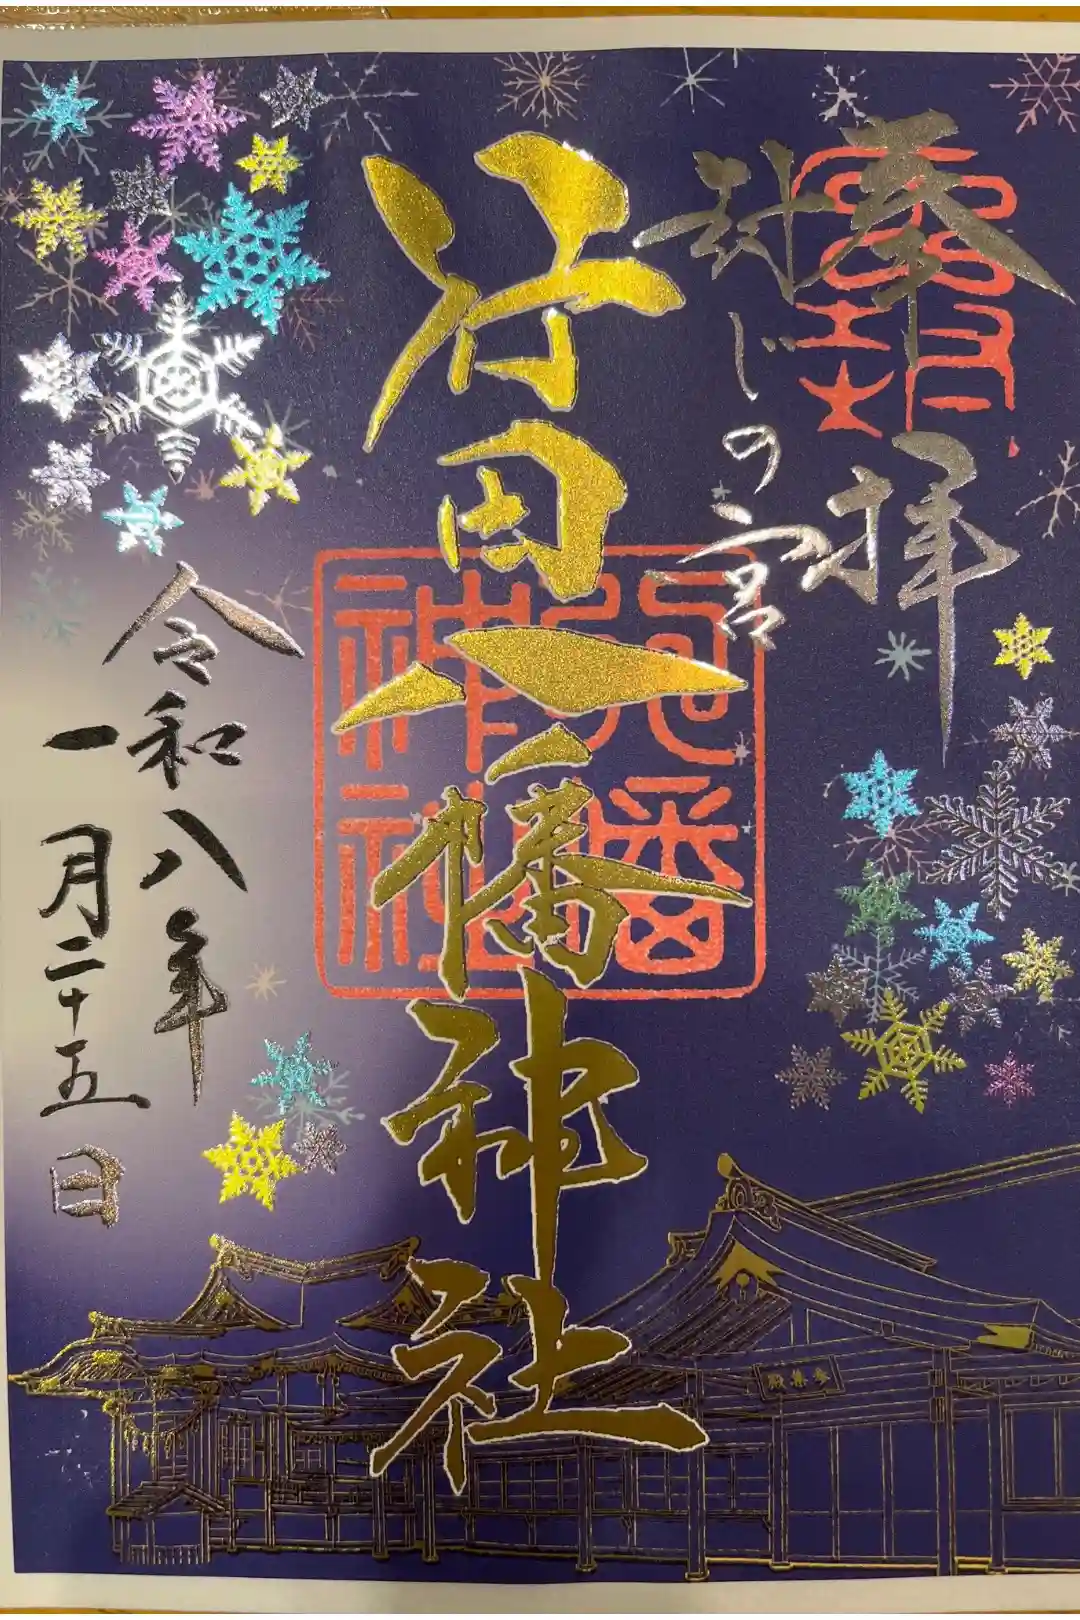 奉拝
封じの宮
行田八幡神社
八幡神社
令和八年
一月二十五日
参集殿